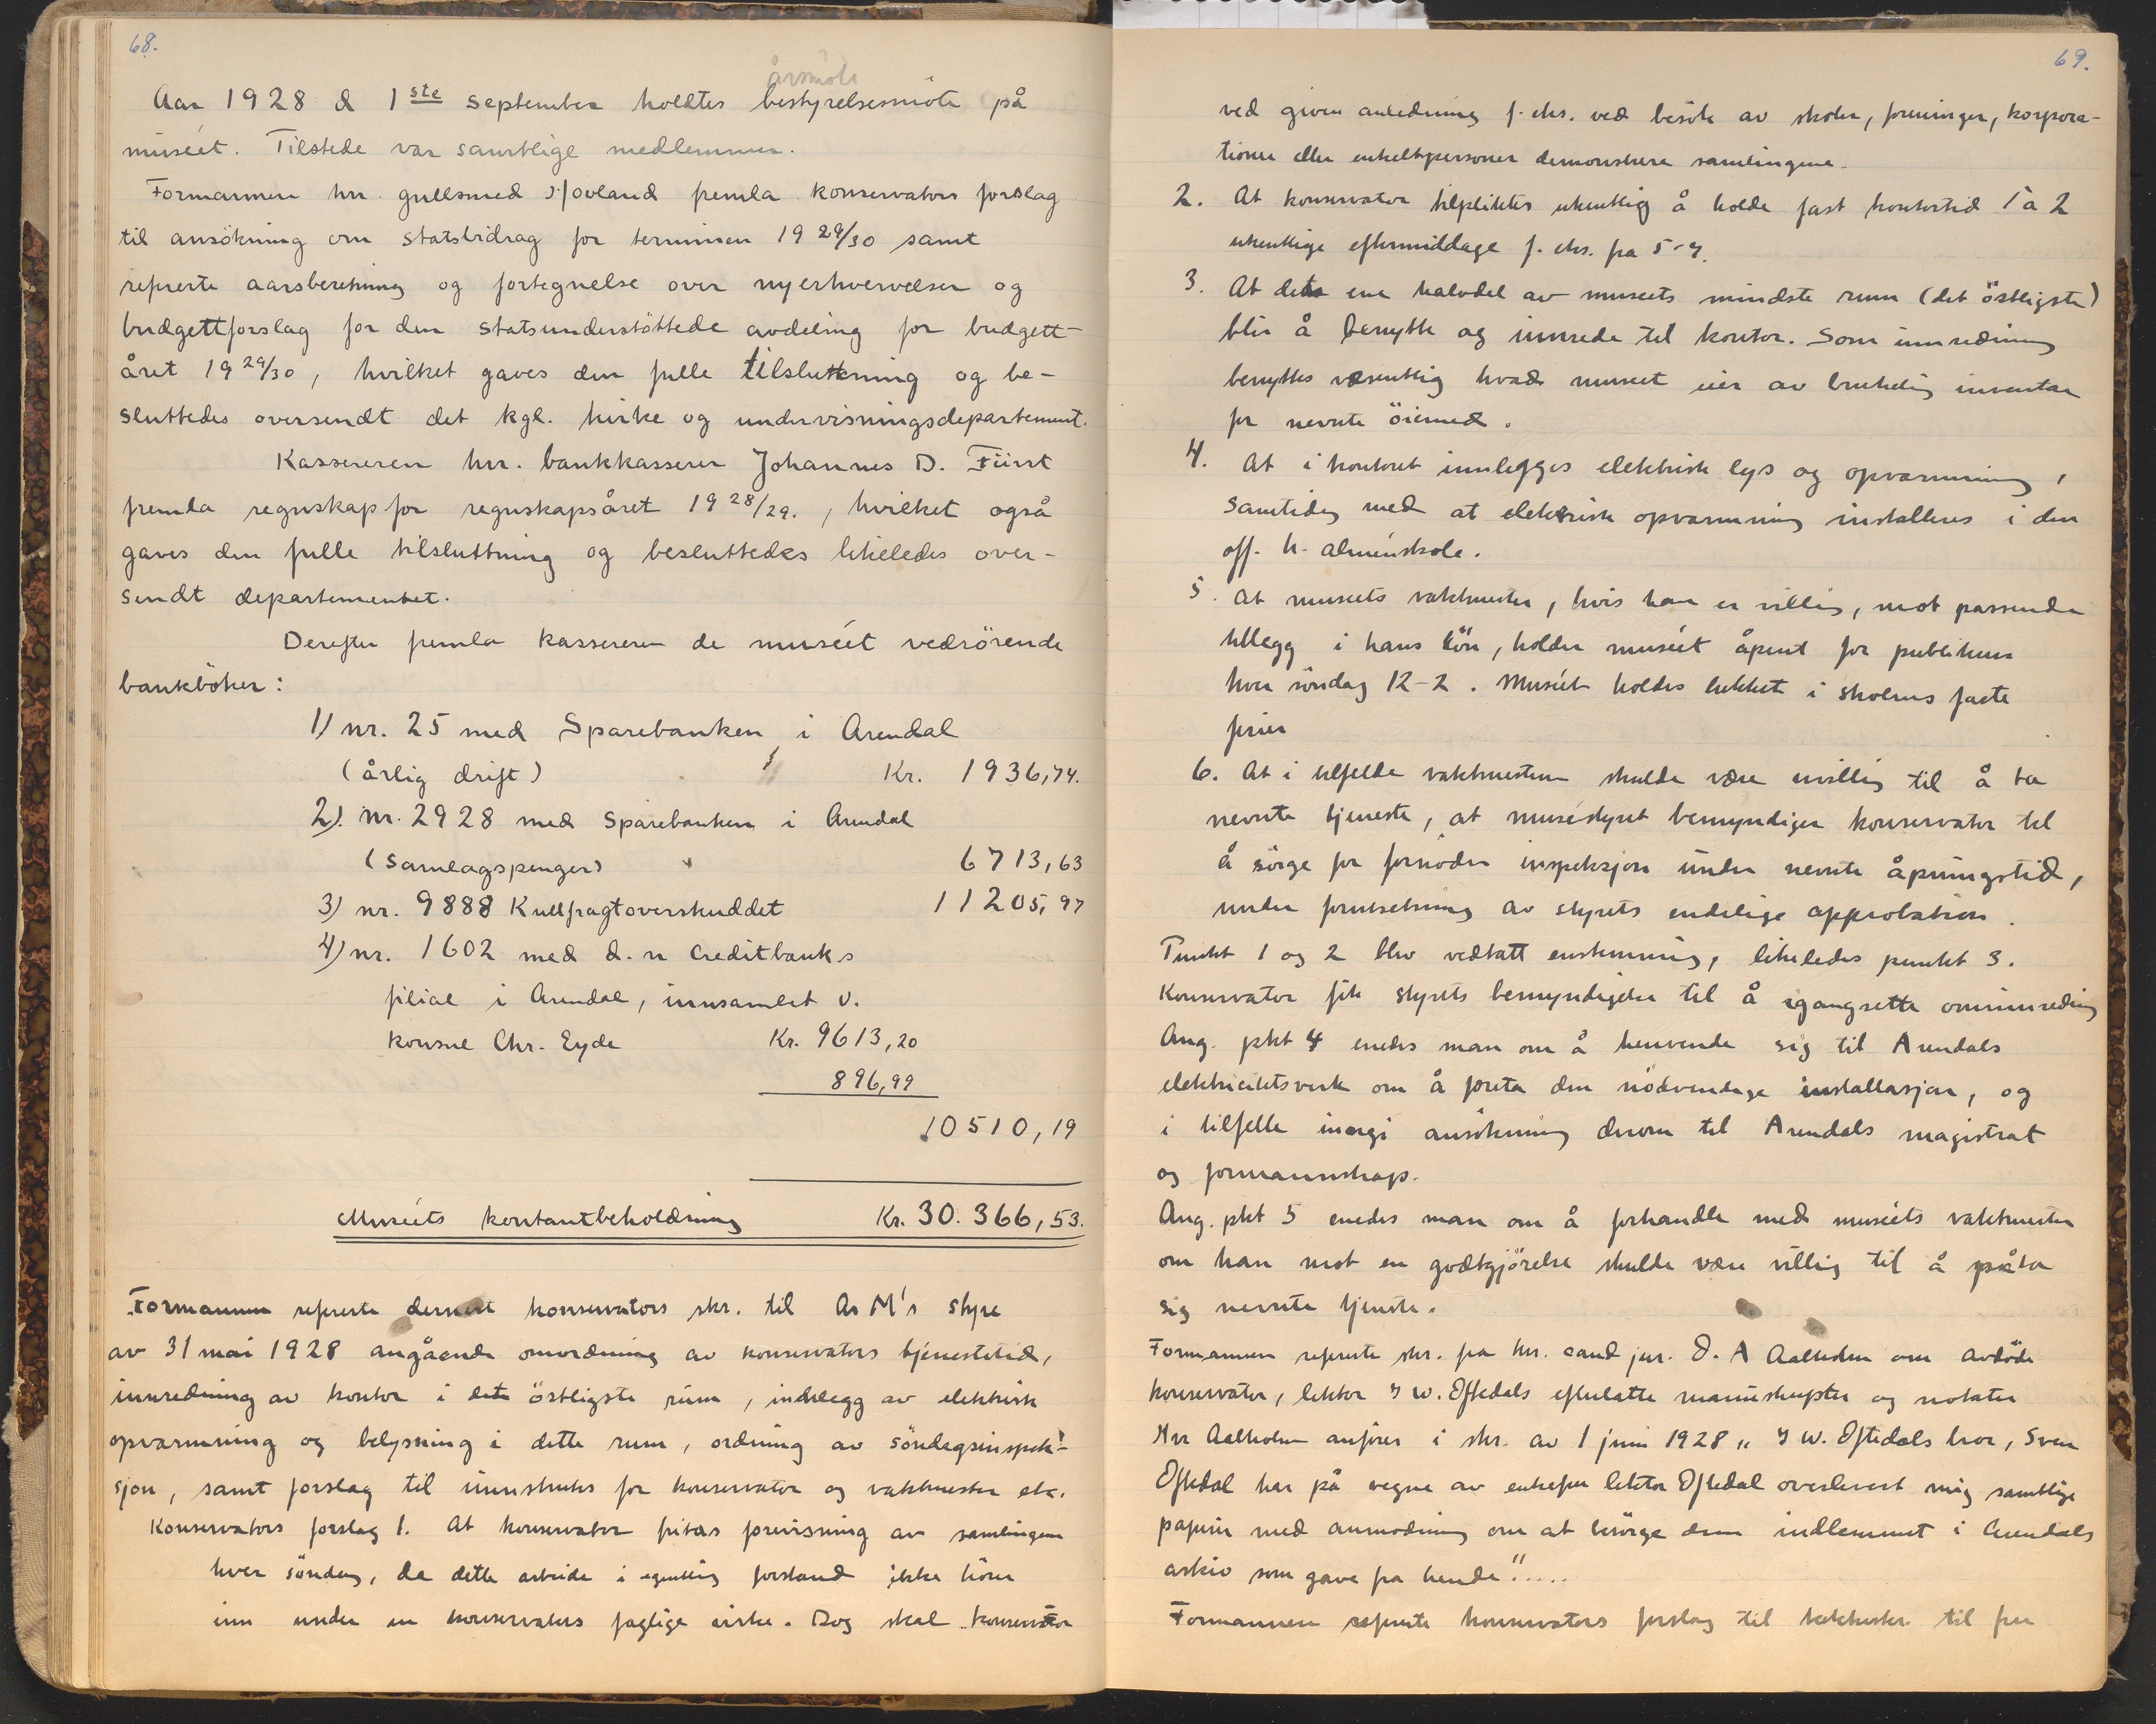 68.
årsmöte
Aar 1928 d 1ste september holdtes bestyrelsesmöte på
muséet. Tilstede var samtlige medlemmer.
Formannen hr. gullsmed Hovland fremla konservators forslag
til ansökning om statsbidrag for terminen 19 29/30 samt
refererte aarsberetning og fortegnelse over nyerhvervelser og
budgettforslag for den statsunderstöttede avdeling for budgett-
året 19 29/30, hvilket gaves den fulle tilsluttning og be-
sluttedes oversendt det kgl. kirke og undervisningsdepartement.
Kassereren hr. bankkasserer Johannes D. Fürst
fremla regnskap for regnskapsåret 19 28/29., hvilket også
gaves den fulle tilsluttning og besluttedes likeledes over-
sendt departementet.
Derefter fremla kassereren de muséet vedrörende
bankböker:
1) nr. 25 med Sparebanken i Arendal
(årlig drift) Kr. 1936,74.
2). nr. 2928 med Sparebanken i Arendal
(Samlagspenger) 6713,63
3) nr. 9888 Kullfragtoverskuddet 11205,97
4) nr. 1602 med d. n Creditbanks
filial i Arendal, innsamlet v.
konsul Chr. Eyde Kr. 9613,20
896,99
10510,19
Muséets kontantbeholdning Kr. 30.366,53.
Formannen refererte dernest konservators skr. til As M's styre
av 31 mai 1928 angående omordning av konservators tjenestetid,
innredning av kontor i det östligste rum, innlegg av elektrisk
opvarmning og belysning i dette rum, ordning av söndagsinspek-
sjon, samt forslag til innstruks for konservator og vaktmester etc.
Konservators forslag 1. At konservator fritas forevisning av samlingene
hver söndag, da dette arbeide i egentlig forstand ikke hörer
inn under en konservators faglige virke. Dog skal konservator
69.
ved given anledning f. eks. ved besök av skoler, foreninger, korpora-
tioner eller enkeltpersoner demonstrere samlingene.
2. At konservator tilpliktes ukentlig å holde fast kontortid 1 à 2
ukentlige eftermiddage f. eks. fra 5-7.
3. At det ene halvdel av museets mindste rum (det östligste)
blir å benytte og innrede til kontor. Som innredning
benyttes vesentlig hvad museet eier av brukelig inventar
for nevnte öiemed.
4. At i kontoret innlegges elektrisk lys og opvarmning,
samtidig med at elektrisk opvarmning installeres i den
off. h. almenskole.
5. At museets vaktmester, hvis han er villig, mot passende
tillegg i hans lön, holder muséet åpent for publikum
hver söndag 12-2. Muséet holdes lukket i skolens faste
ferier
6. At i tilfelde vaktmesteren skulde være uvillig til å ta
nevnte tjeneste, at muséstyret bemyndiger konservator til
å sörge for fornöden inspeksjon under nevnte åpningstid,
under forutsetning av styrets endelige approbation.
Punkt 1 og 2 blev vedtatt enstemmig, likeledes punkt 3.
Konservator fik styrets bemyndigelse til å igangsette ominnredning
Ang. pkt 4 enedes man om å henvende sig til Arendals
elektricitetsverk om å foreta den nödvendige installasjon, og
i tilfelle inngi ansökning derom til Arendals magistrat
og formannskap.
Ang. pkt 5 enedes man om å forhandle med muséets vaktmester
om han mot en godtgjörelse skulde være villig til å påta
sig nevnte tjeneste.
Formannen refererte skr. fra hr. cand jur. D. A Aalholm om avdöde
konservator, lektor J W. Oftedals efterlatte manuskripter og notater
Hrr Aalholm anförer i skr. av 1 juni 1928 „ J W. Oftedals bror, Sven
Oftedal har på vegne av enkefru lektor Oftedal overlevert mig samtlige
papirer med anmodning om at besörge dem indlemmet i Arendals
arkiv som gave fra hende“.....
Formannen refererte konservators forslag til takkeskr. til fru